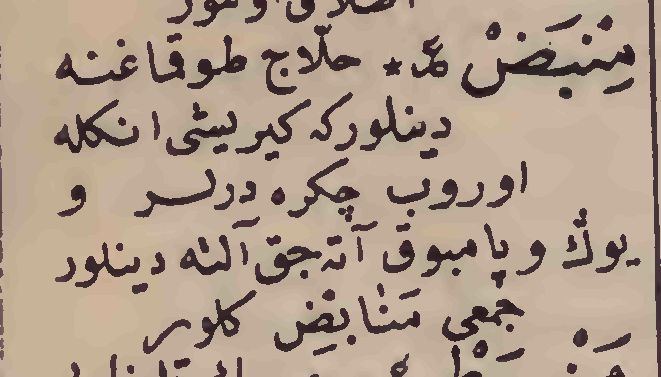 مِنْبَضْ * حلّاج طوقماغنه
دينلوركه كيريشى انكله
اوروب چكره درلر و
يوڭ و پامبوق آته‌جق آلته دينلور
جمعى مَنَابِض كلور